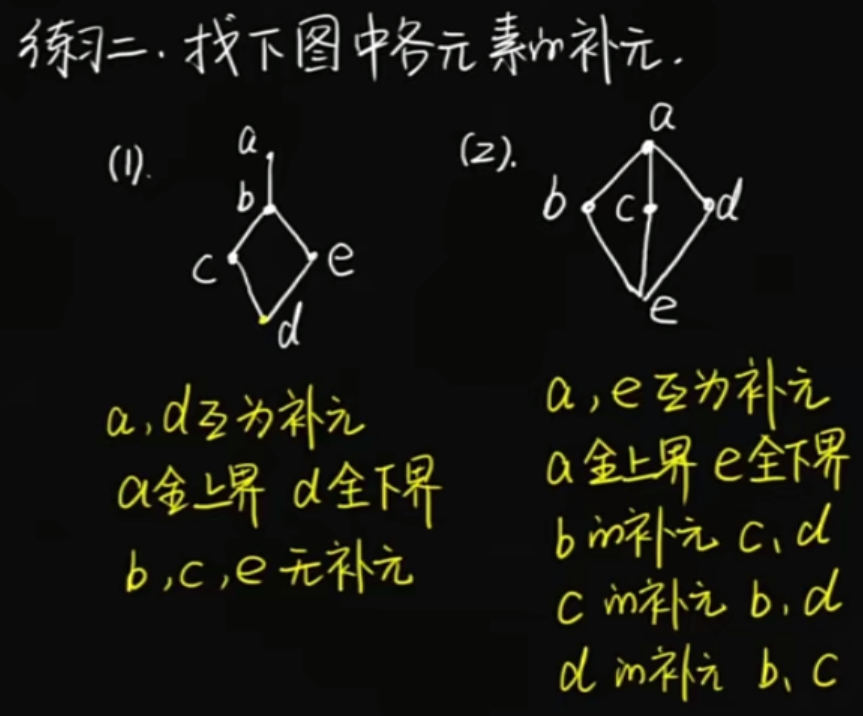 练习二.找下图中各元素的补元.
(1).
a
b
c
e
d
a,d互为补元
a全上界 d全下界
b,c,e无补元
(2).
a
b
c
d
e
a,e互为补元
a全上界 e全下界
b的补元 c、d
c的补元 b、d
d的补元 b、c